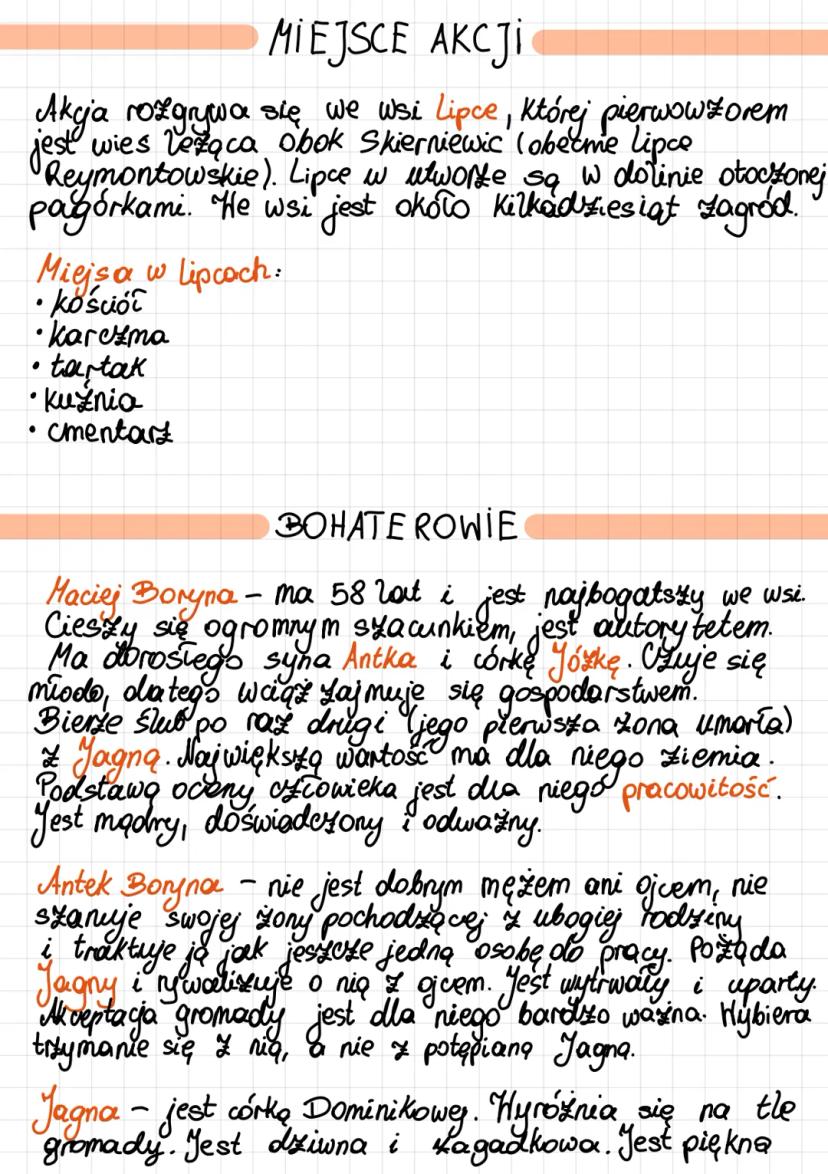 MIEJSCE AKCJI
Akcja rozgrywa się we wsi Lipce, której pierwowzorem
jest wieś leżąca obok Skierniewic (obecnie Lipce
Reymontowskie). Lipce w utworze są w dolinie otoczonej
pagórkami. We wsi jest około kilkadziesiąt zagród.
Miejsa w Lipcach:
• kościół
• karczma
• tartak
• kuźnia
• cmentarz
BOHATEROWIE
Maciej Boryna – ma 58 lat i jest najbogatszy we wsi.
Cieszy się ogromnym szacunkiem, jest autorytetem.
Ma dorosłego syna Antka i córkę Józkę. Czuje się
młodo, dlatego wciąż zajmuje się gospodarstwem.
Bierze ślub po raz drugi (jego pierwsza żona umarła)
z Jagną. Największą wartość ma dla niego ziemia.
Podstawą oceny człowieka jest dla niego pracowitość.
Jest mądry, doświadczony i odważny.
Antek Boryna – nie jest dobrym mężem ani ojcem, nie
szanuje swojej żony pochodzącej z ubogiej rodziny
i traktuje ją jak jeszcze jedną osobę do pracy. Pożąda
Jagny i rywalizuje o nią z ojcem. Jest wytrwały i uparty.
Akceptacja gromady jest dla niego bardzo ważna. Wybiera
trzymanie się z nią, a nie z potępianą Jagną.
Jagna – jest córką Dominikowej. Wyróżnia się na tle
gromady. Jest dziwna i zagadkowa. Jest piękną